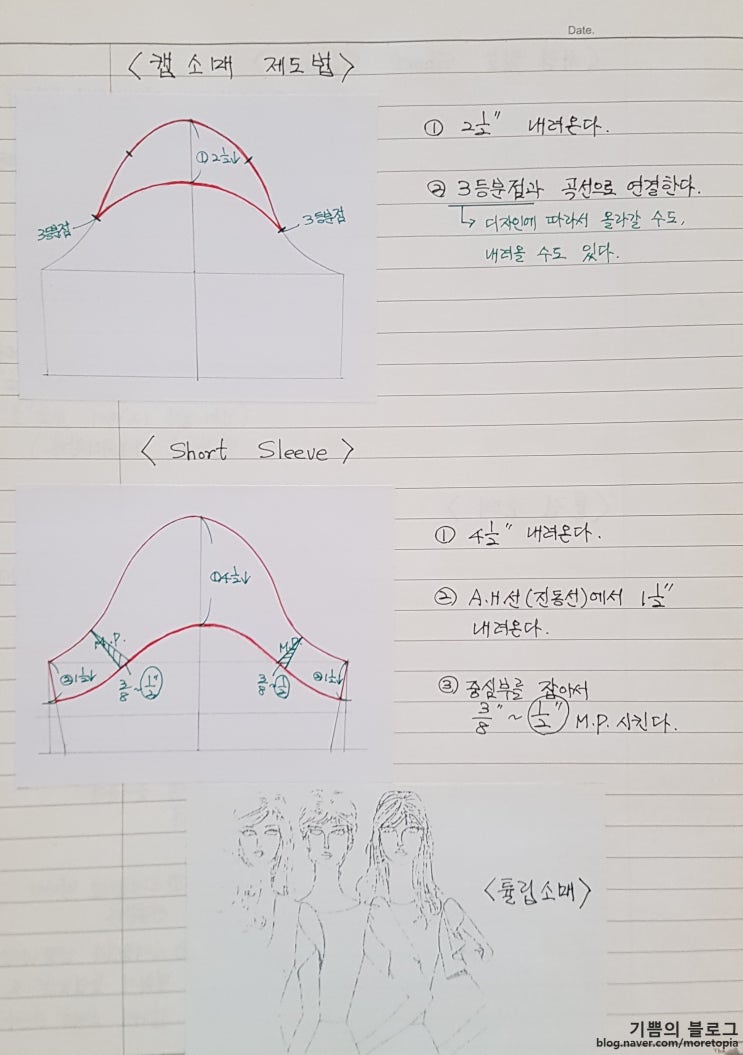 Date.
< 캡 소매 제도법 >
① 2½"↓
3등분점
3등분점
① 2½" 내려온다.
② 3등분점과 곡선으로 연결한다.
↳ 디자인에 따라서 올라갈 수도,
내려올 수도 있다.
< Short Sleeve >
① 4½↓
M.P.
M.P.
② 1½↓
3/8 ~ 1/2"
3/8 ~ 1/2
② 1½↓
① 4½" 내려온다.
② A.H선(진동선)에서 1½"
내려온다.
③ 중심부를 잡아서
3/8" ~ 1/2" M.P. 시킨다.
<튤립소매>
기쁨의 블로그
blog.naver.com/moretopia